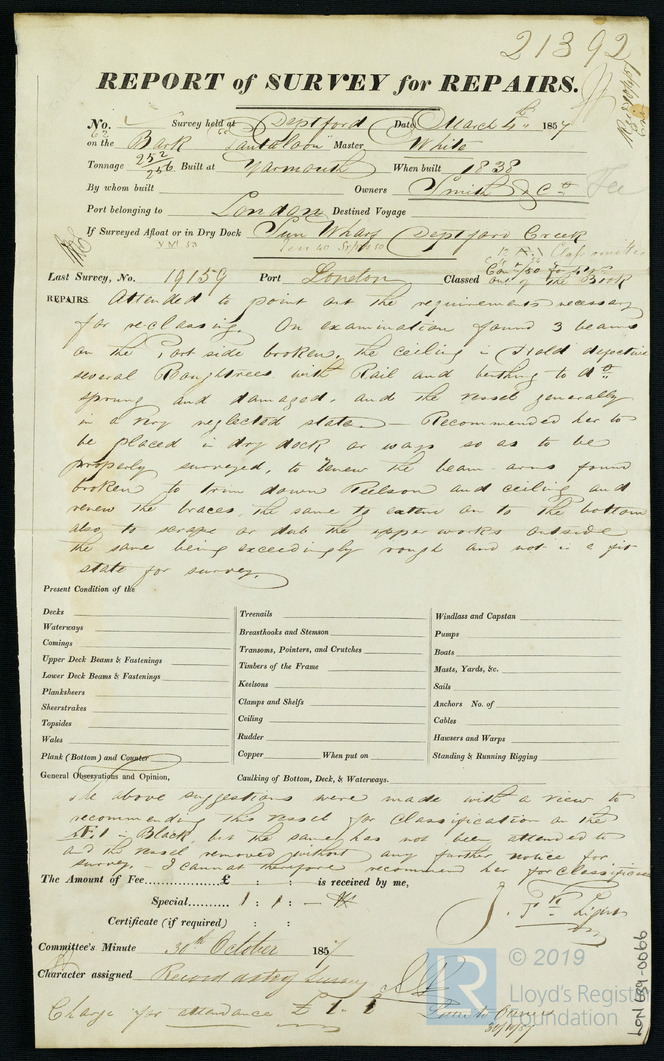 21392
REPORT of SURVEY for REPAIRS.
No. Survey held at Deptford Date March 4th 1857
on the Bark Santaloon Master White
Tonnage 252/256 Built at Yarmouth When built 1838
By whom built Owners Smith & Co Fee
Port belonging to London Destined Voyage
If Surveyed Afloat or in Dry Dock Sun Wharf Deptford Creek
Last Survey, No. 19159 Port London Classed out of the Book
REPAIRS. Attended to point out the requirements necessary
for reclassing. On examination found 3 beams
on the Port side broken, the ceiling in Hold defective
several Roughtrees with Rail and berthing to do
sprung and damaged, and the vessel generally
in a very neglected state. — Recommended her to
be placed in dry dock or ways so as to be
properly surveyed, to renew the beam arms found
broken to trim down Keelson and ceiling and
renew the braces, the same to extend on to the bottom
also to scrape or dub the upper works outside
the same being exceedingly rough and not in a fit
state for survey.
Present Condition of the
Decks
Waterways
Comings
Upper Deck Beams & Fastenings
Lower Deck Beams & Fastenings
Planksheers
Sheerstrakes
Topsides
Wales
Plank (Bottom) and Counter
Treenails
Breasthooks and Stemson
Transoms, Pointers, and Crutches
Timbers of the Frame
Keelsons
Clamps and Shelfs
Ceiling
Rudder
Copper When put on
Windlass and Capstan
Pumps
Boats
Masts, Yards, &c.
Sails
Anchors No. of
Cables
Hawsers and Warps
Standing & Running Rigging
General Observations and Opinion, Caulking of Bottom, Deck, & Waterways.
The above suggestions were made with a view to
recommending this vessel for classification on the
Æ 1 in Black, but the same has not been attended to
and the vessel removed without any further notice for
survey. I cannot therefore recommend her for classification
The Amount of Fee............... £ : : is received by me,
Special.......... 1 : 1 : —
Certificate (if required) : :
J. H. Light
Committee's Minute 30th October 1857
Character assigned Record date of Survey
Charge for attendance £1.1
30/10/57
© 2019
LR
Lloyd's Register
Foundation
LON 639-0066